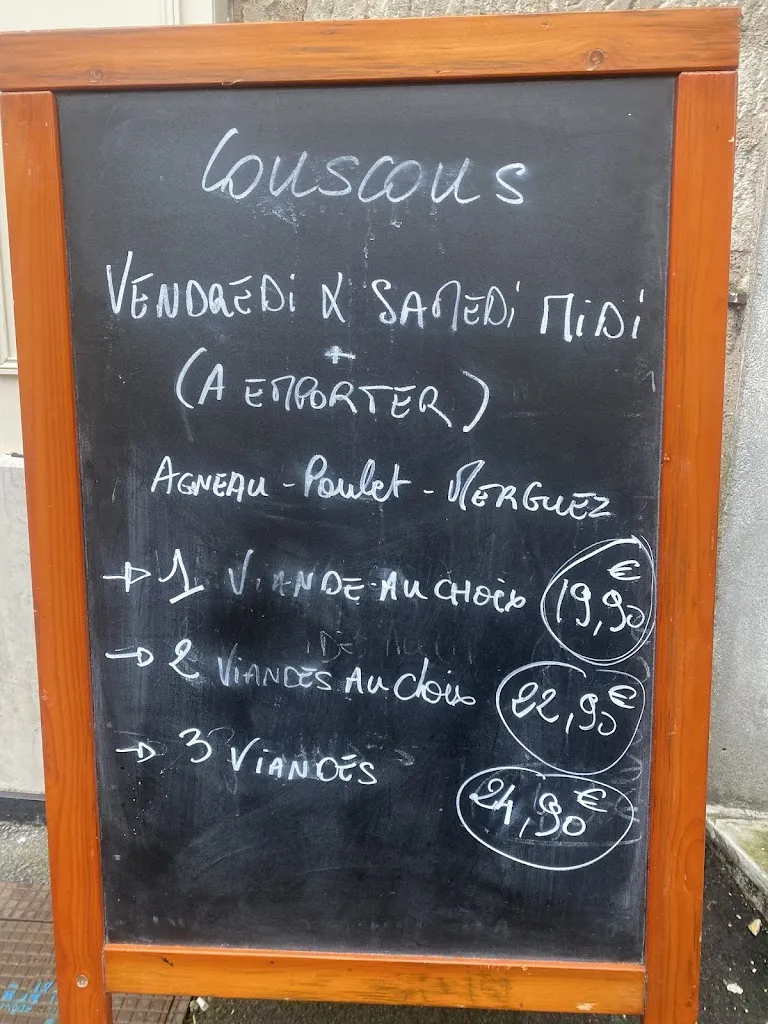 Couscous
VENDREDi & SAMEDi MiDi
+
(A EMPORTER)
AGNEAU - Poulet - MERGUEZ
→ 1 ViANDE AU CHOix 19,90€
→ 2 ViANDES AU Choix 22,90€
→ 3 ViANDES 24,90€